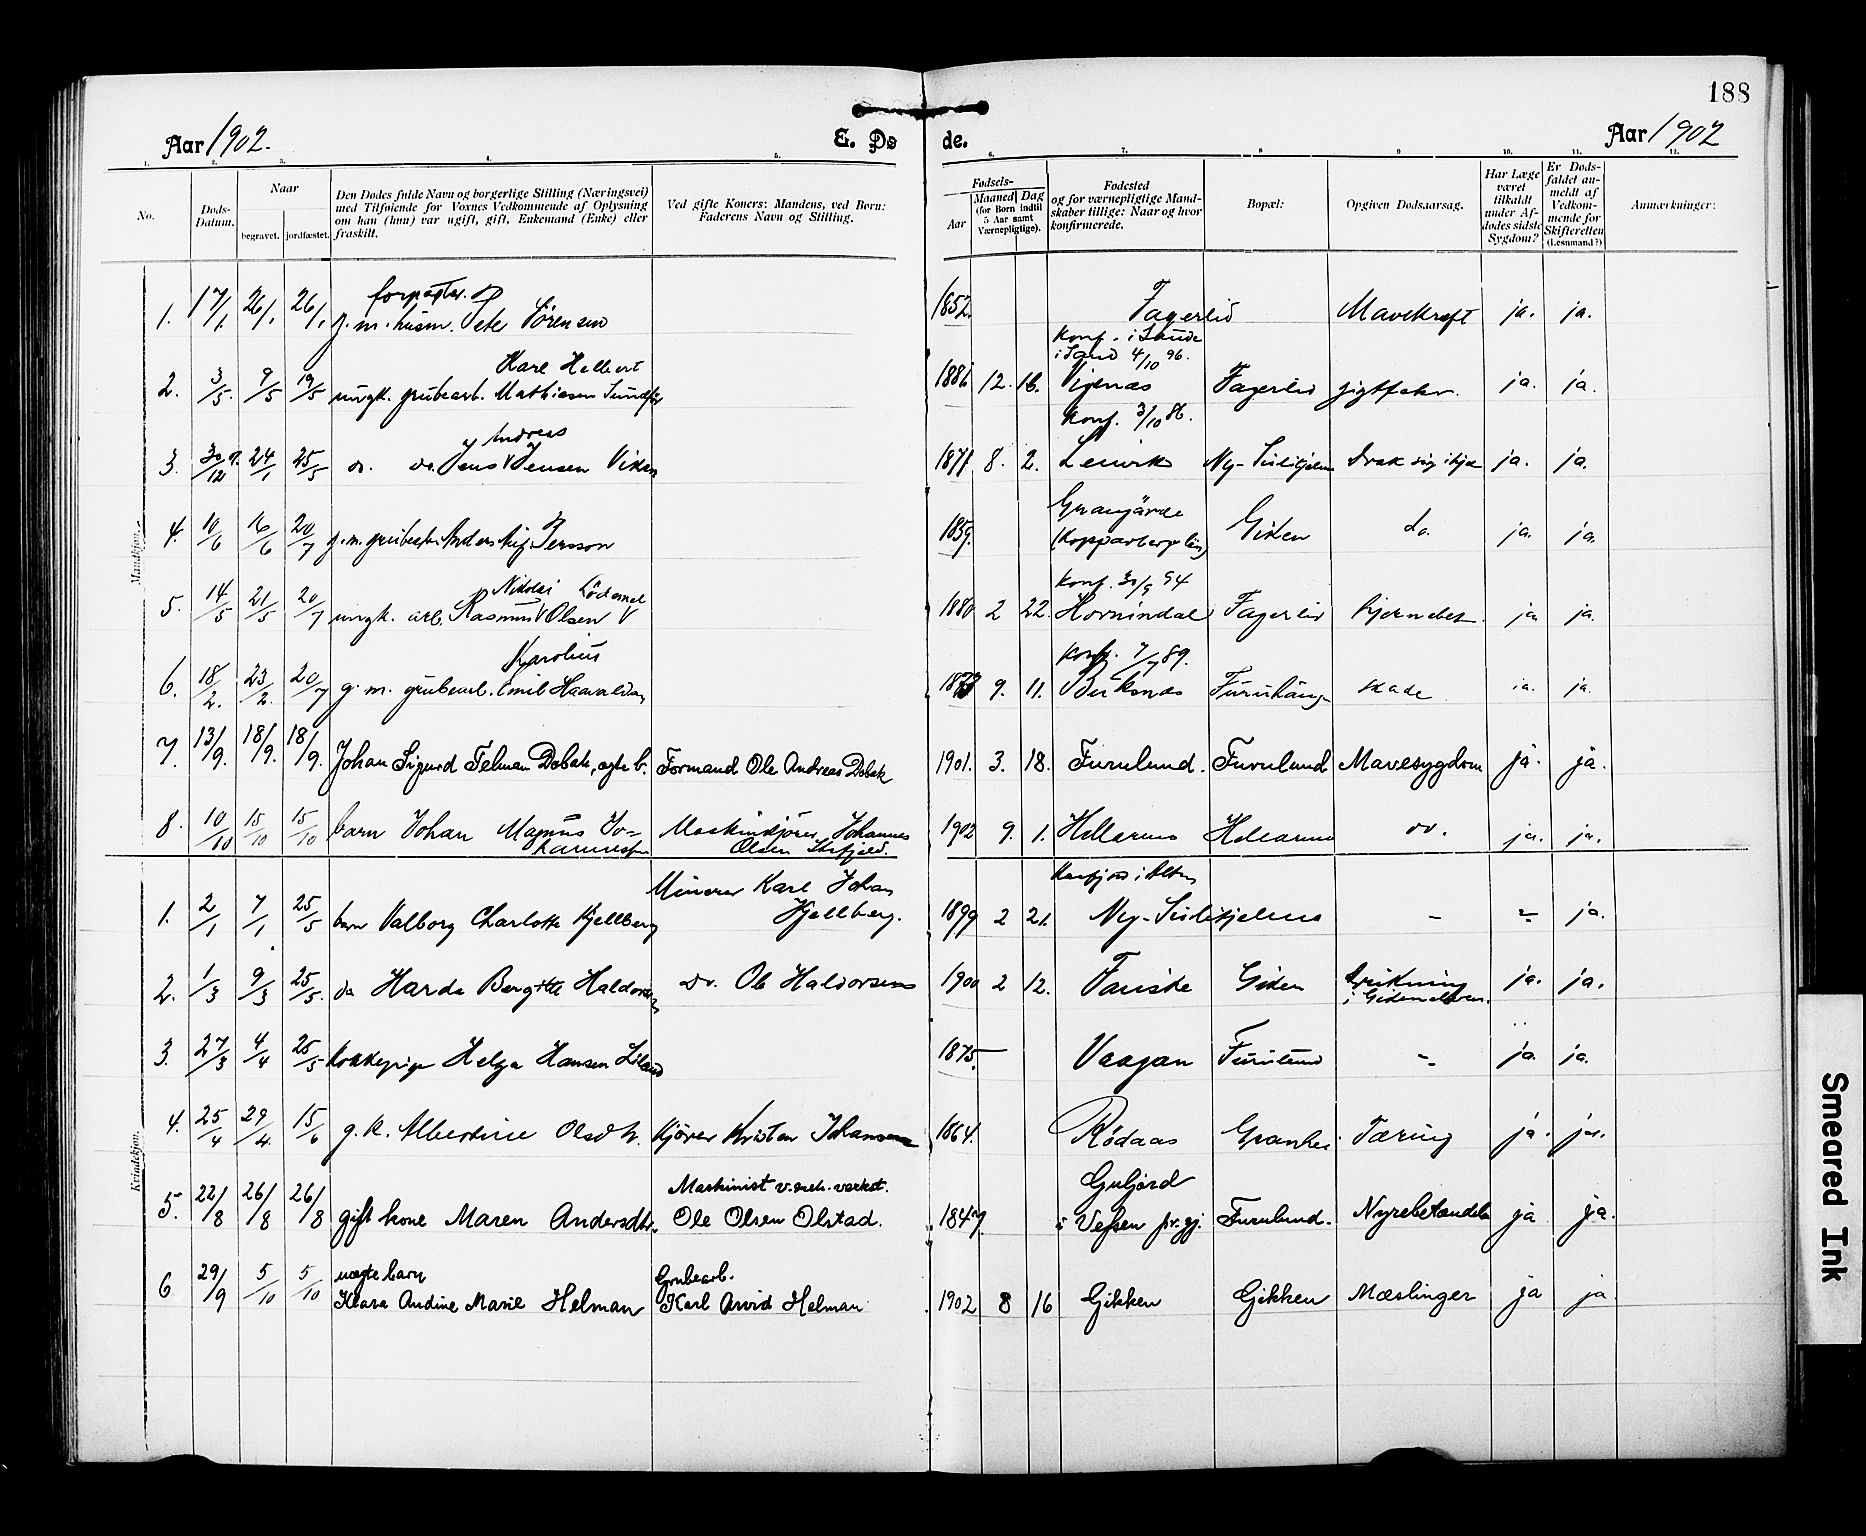 188
Aar 1902.
E. Dø
de.
Aar 1902
1. 2. 3. 4. 5. 6. 7. 8 9 10. 11. 12.
No.
Døds-Datum.
Naar
begravet. jordfæstet.
Den Dødes fulde Navn og borgerlige Stilling (Næringsvei)
med Tilføiende for Voxnes Vedkommende af Oplysning
om han (hun) var ugift, gift, Enkemand (Enke) eller
fraskilt.
Ved gifte Koner: Mandens, ved Børn:
Faderens Navn og Stilling.
Fødsels-
Aar
Maaned Dag
(for Børn indtil
5 Aar samt
Værnepligtige).
Fødested
og for værnepligtige Mand-
skaber tillige: Naar og hvor
konfirmerede.
Bopæl:
Opgiven Dødsaarsag.
Har Læge
været
tilkaldt
under Af-
dødes sidste
Sygdom?
Er Døds-
faldet an-
meldt af
Vedkom-
mende for
Skifteretten
(Lensmand?)
Anmærkninger:
Mandkjøn.
1. 17/1 26/1 26/1 g. m. husm. Peter Sørensen 1852. Fagerlid Mavekræft ja. ja.
Karl Helbert
2. 3/5 9/5 19/5 ungk. grubearb. Mathiesen 1886 12. 16. Fagerlid gigtfeber. ja. ja.
4/10 96.
Andreas
Konf. 3/10 86.
3. 30/12 24/1 25/5 do. do. Jens Jensen 1871 8. 2. Lenvik Ny-Sulitjelma Drak sig ihjel ja. ja.
Grangärde
4. 10/6 16/6 20/7 g. m. grubearb. Anders Persson 1859. (Kopparbergs län) Giken do. ja. ja.
Nikolai Lödemel
Konf. 30/9 94
5. 14/5 21/5 20/7 ungk. arb. Rasmus Olsen 1880 2 22. Hornindal Fagerlid hjernebet. ja ja.
Karolius
Konf. 7/7 89.
6. 18/2. 23/2. 20/7 g. m. grubearb. Emil Haavaldsen 9. 11. Furuhaug skade ja. ja.
7. 13/9. 18/9. 18/9. Johan Sigurd Telman Dobak, ægte b. Formand Ole Andreas Dobak 1901. 3. 18. Furulund. Furulund Mavesygdom ja. ja.
8. 10/10 15/10 15/10 barn Johan Magnus Jo-
hannessen Maskinkjører Johannes
Olsen 1902 9. 1. Hellarmo Hellarmo do. ja. ja.
Kvindekjøn.
Kaafjord i Alten
Minerer Karl Johan
1. 2/1 7/1 25/5 barn Valborg Charlotte Kjellberg Kjellberg. 1899 2 21. Ny-Sulitjelma - - ja.
2. 1/3 9/3 25/5. do Harda Bergitte Haldorsen do. Ole Haldorsen 1900 2 12. Fauske Giken Drukning
i Gikenelven. ja. ja.
3. 27/3 4/4 25/5 kokkepige Helga Hansen Liland 1875. Vaagan Furulund - ja. ja.
4. 25/4 29/4. 15/6 g. k. Albertine Olsdtr. Kjører Kristen Johansen 1864. Rödaas Tæring ja. ja.
Maskinist v. meh. verkst.
5. 22/8 26/8 26/8 gift kone Maren Andersdtr. Ole Olsen Olstad. 1847. i Vefsen pr.gj. Furulund. Nyrebetændelse ja ja.
uægte barn Grubearb.
6 29/9 5/10 5/10 Klara Andine Marie Helman Karl Arvid Helman 1902 8 16 Gikken Gikken Mæslinger ja ja
Smeared Ink